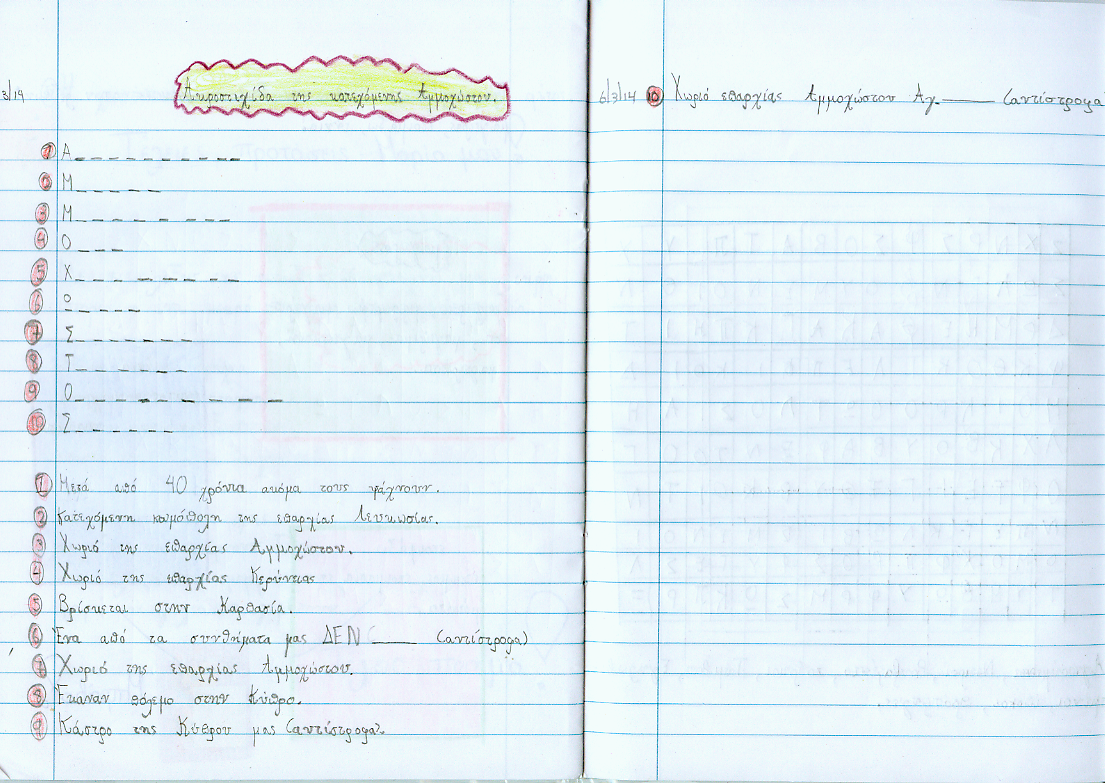 3/14
Ακροστιχίδα της κατεχόμενης Αμμοχώστου.
1 Α_ _ _ _ _ _ _ _ _ _
2 Μ_ _ _ _ _
3 Μ_ _ _ _ _ _ _
4 Ο _ _ _
5 Χ_ _ _ _ _ _ _ _
6 Ο_ _ _ _
7 Σ_ _ _ _ _ _ _
8 Τ_ _ _ _ _ _
9 Ο_ _ _ _ _ _ _ _ _
10 Σ_ _ _ _ _ _
1 Μετά από 40 χρόνια ακόμα τους ψάχνουν.
2 Κατεχόμενη κωμόπολη της επαρχίας Λευκωσίας.
3 Χωριό της επαρχίας Αμμοχώστου.
4 Χωριό της επαρχίας Κερύνειας
5 Βρίσκεται στην Καρπασία.
6 Ένα από τα συνθήματα μας ΔΕΝ ____ (αντίστροφα)
7 Χωριό της επαρχίας Αμμοχώστου.
8 Έκαναν πόλεμο στην Κύπρο.
9 Κάστρο της Κύπρου μας (αντίστροφα).
6/3/14 10 Χωριό επαρχίας Αμμοχώστου Αγ. ____ (αντίστροφα